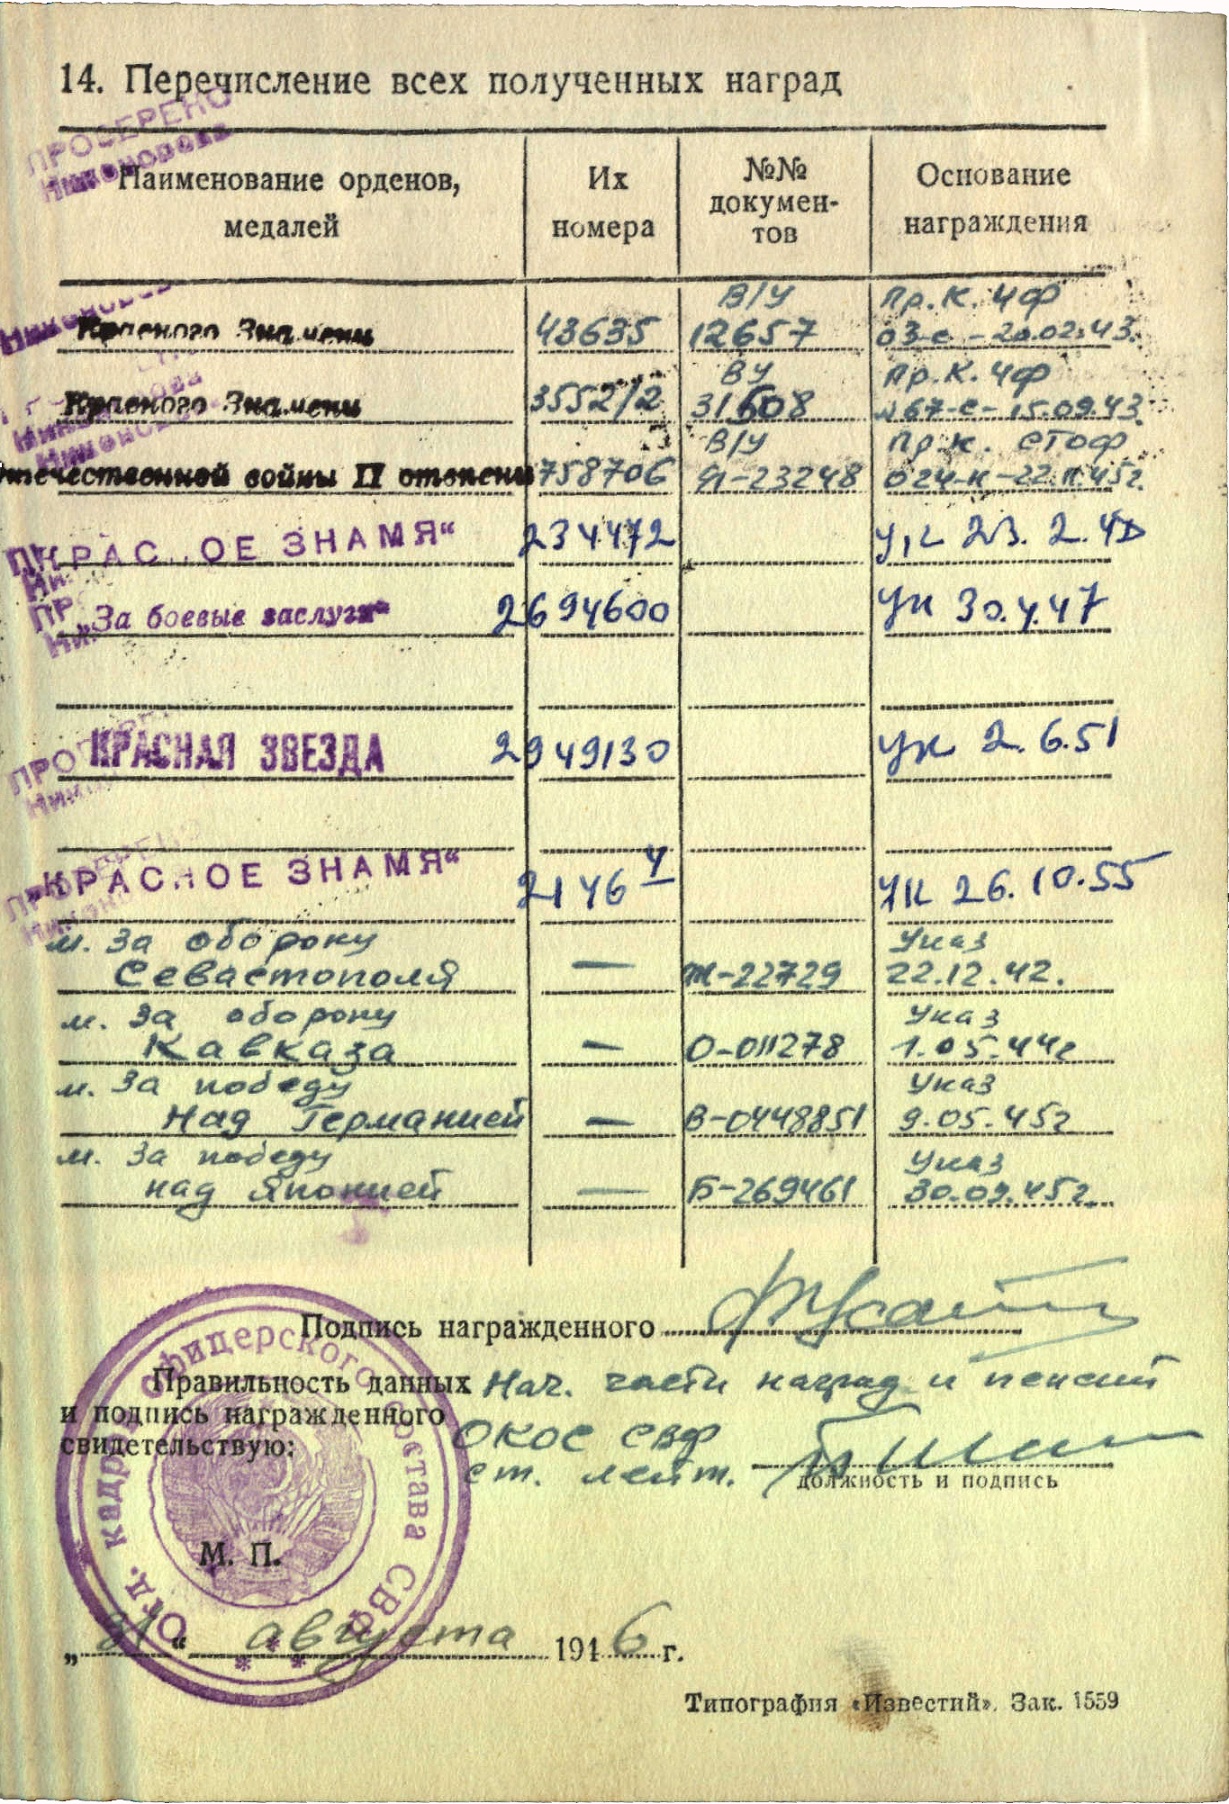 14. Перечисление всех полученных наград
ПРОВЕРЕНО
Наименование орденов, медалей
Их номера
№№ докумен-тов
Основание награждения
В/У Пр. К. ЧФ
Красного Знамени 43635 12657 03-с - 20.02.43.
ВУ Пр. К. ЧФ
Красного Знамени 3552/2 31508 №67-с- 15.09.43.
В/У Пр. к. СТОФ
Отечественной войны II степени 758706 Я-23248 024-н-22.11.45г.
„КРАСНОЕ ЗНАМЯ“ 234472 Ук 23. 2. 4
„За боевые заслуги“ 2694600 Ук 30.4.47
КРАСНАЯ ЗВЕЗДА 2949130 Ук 2.6.51
„КРАСНОЕ ЗНАМЯ“ 2146 4 УК 26.10.55
м. За оборону Указ
Севастополя — Ж-22729 22.12.42.
м. За оборону Указ
Кавказа — О-011278 1.05.44г
м. За победу Указ
Над Германией — В-0448851 9.05.45г
м. За победу Указ
над Японией — Б-269461 30.09.45г.
Подпись награжденного
Правильность данных Нач. части наград и пенсий
и подпись награжденного ОКОС СВФ
свидетельствую: ст. лейт.
должность и подпись
Отд. кадров офицерского состава СВФ
М. П.
„31“ августа 1946 г.
Типография «Известий». Зак. 1559